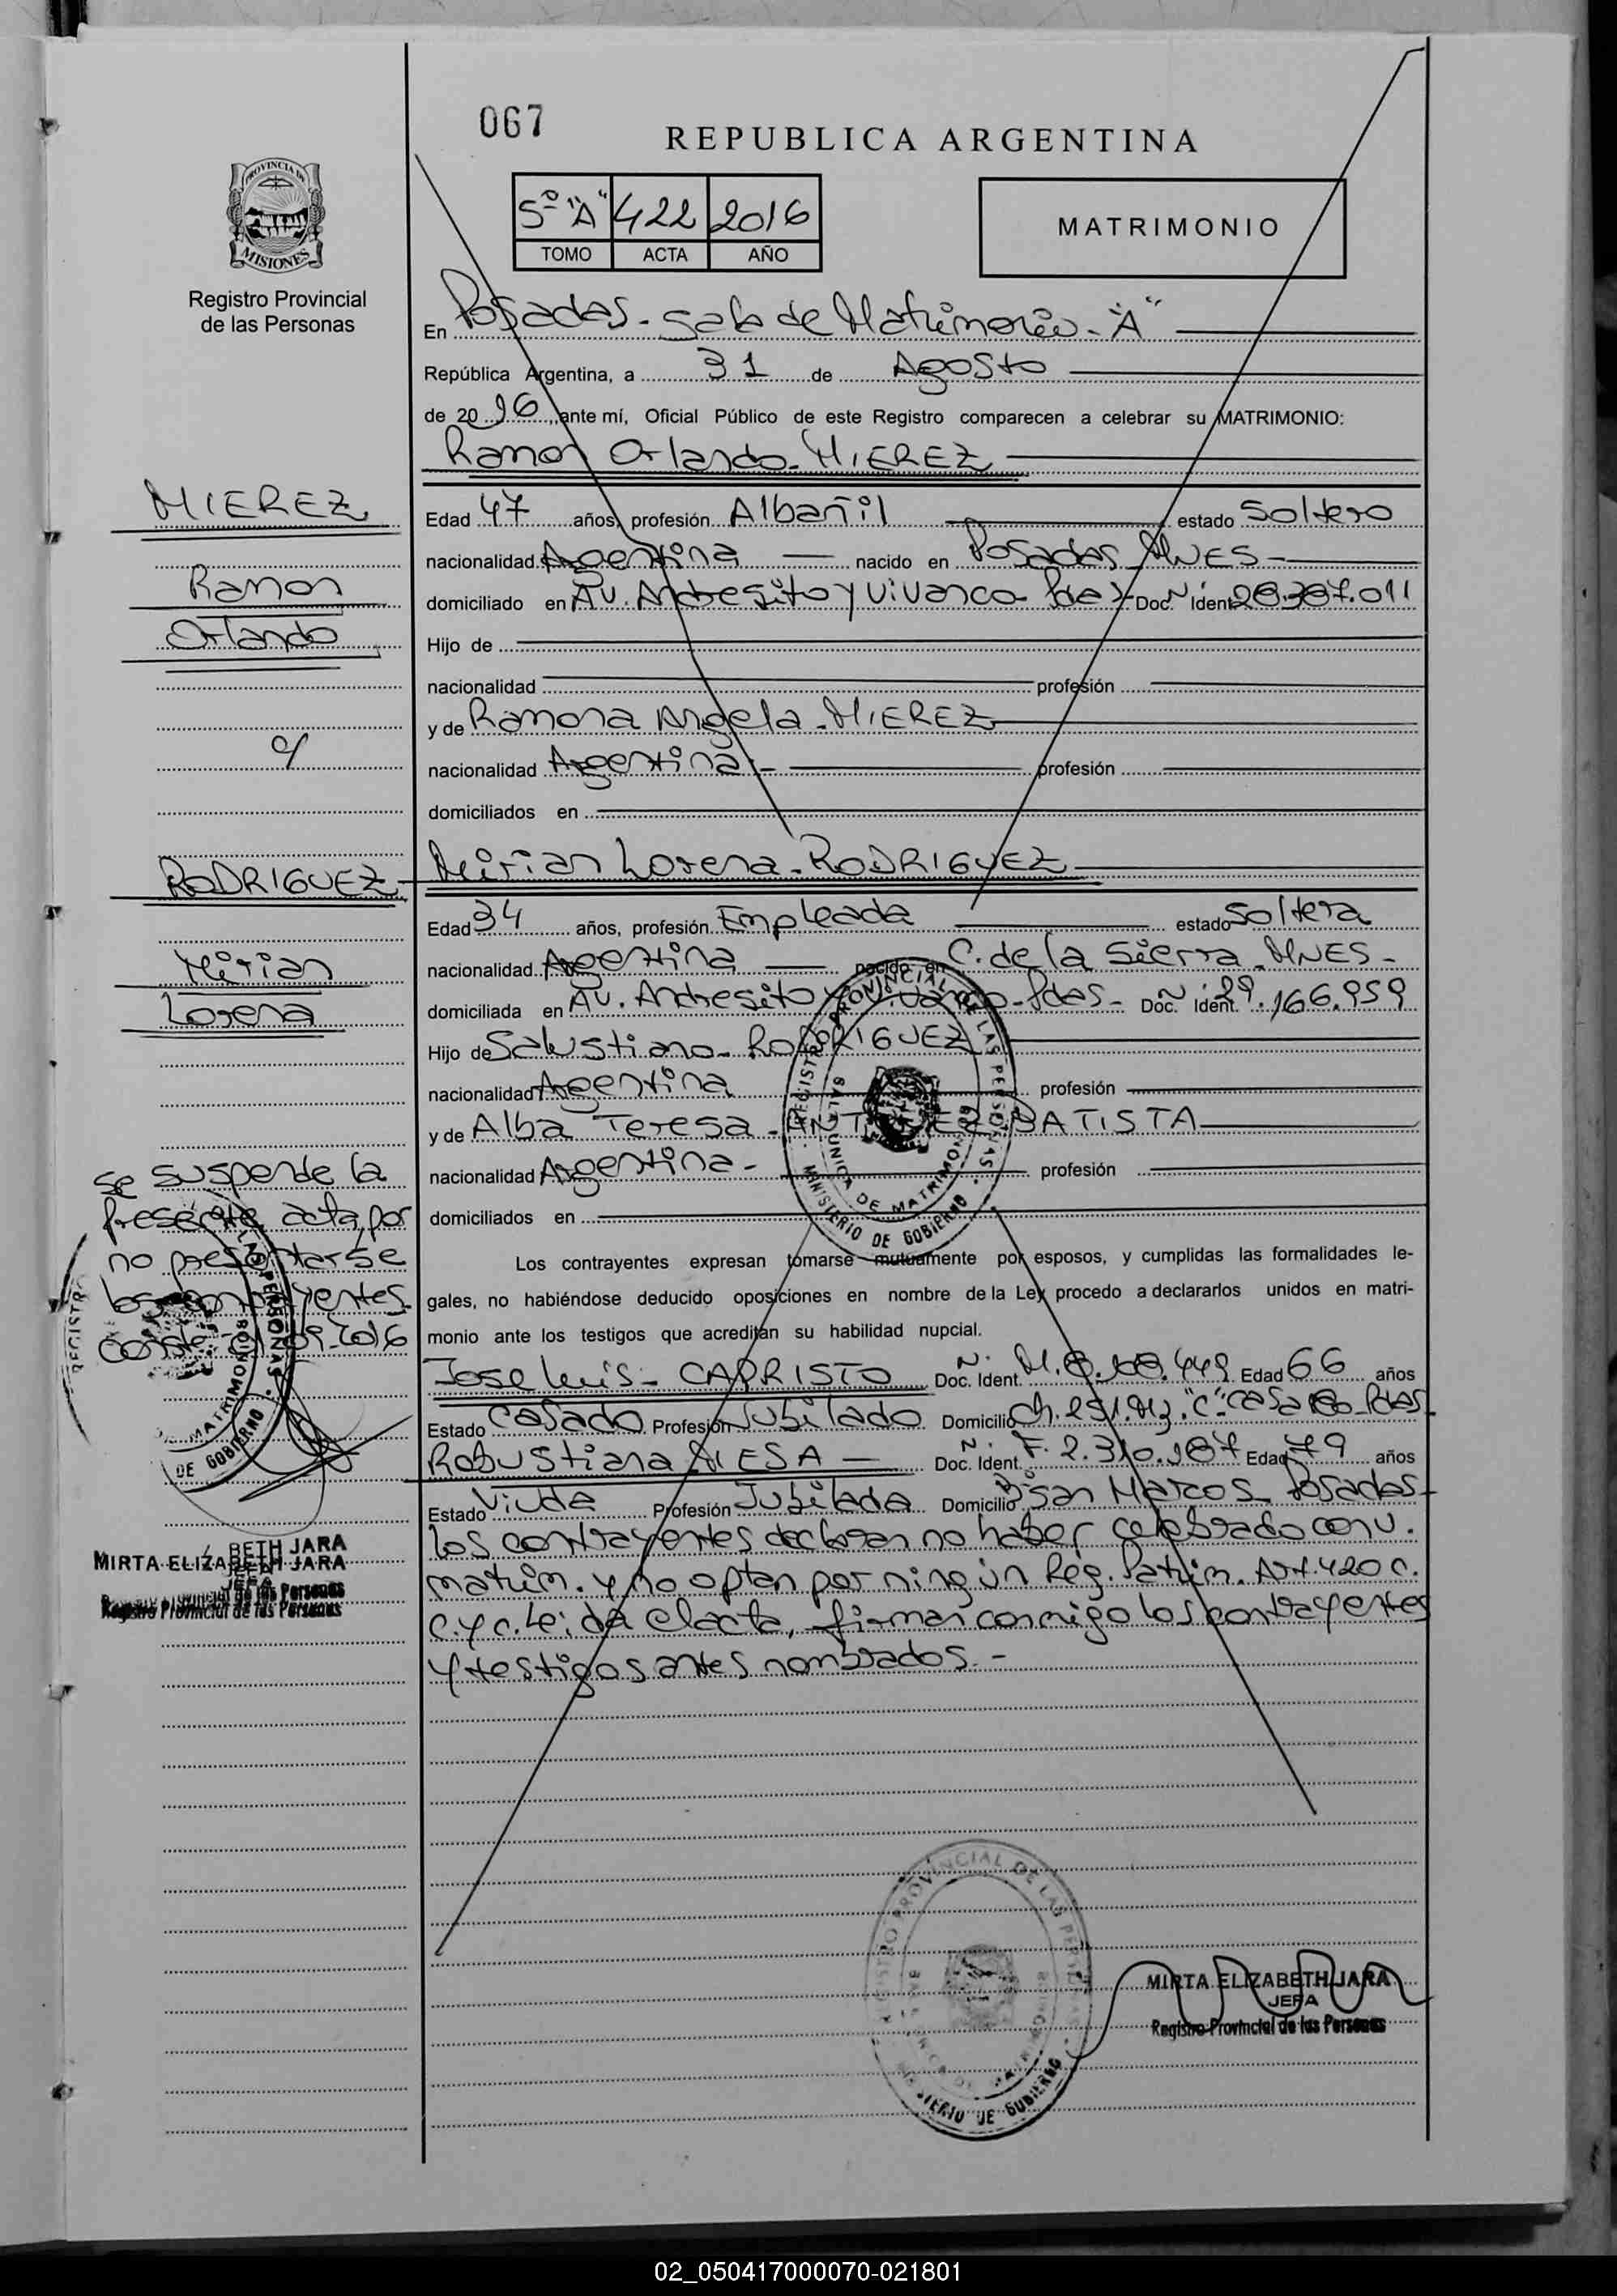 067
REPUBLICA ARGENTINA
PROVINCIA DE
MISIONES
Registro Provincial
de las Personas
5º "A" 422 2016
TOMO ACTA AÑO
MATRIMONIO
En Posadas - Sala de Matrimonio - "A"
República Argentina, a 31 de Agosto
de 20 16, ante mí, Oficial Público de este Registro comparecen a celebrar su MATRIMONIO:
Ramon Orlando - MIEREZ
Edad 47 años, profesión Albañil estado Soltero
nacionalidad Argentina nacido en Posadas MNES -
domiciliado en Av. Andresito y Vivanco Pdas - Doc. Nº Ident
Hijo de
nacionalidad profesión
y de Ramona Angela - MIEREZ
nacionalidad Argentina - profesión
domiciliados en
Mirian Lorena - RODRIGUEZ
Edad 34 años, profesión Empleada estado Soltera
nacionalidad Argentina nacido en C. de la Sierra MNES -
domiciliada en Av. Andresito y Vivanco - Pdas - Doc. Nº Ident. 29.166.959
Hijo de Salustiano - RODRIGUEZ
nacionalidad Argentina profesión
y de Alba Teresa - BATISTA
nacionalidad Argentina - profesión
domiciliados en
Los contrayentes expresan tomarse mutuamente por esposos, y cumplidas las formalidades le-
gales, no habiéndose deducido oposiciones en nombre de la Ley procedo a declararlos unidos en matri-
monio ante los testigos que acreditan su habilidad nupcial.
Jose Luis - CAPRISTO Doc. Ident. Nº M. Edad 66 años
Estado Casado Profesión Jubilado Domicilio Ch. 251. Mz. "C" casa Pdas
Robustiana Doc. Ident. Nº F. 2.310.187 Edad 79 años
Estado Viuda Profesión Jubilada Domicilio Bº San Marcos Posadas -
los contrayentes declaran no haber celebrado conv.
matrim. y no optan por ningún Reg. Patrim. Art. 420 C.
C. y C. Leida el acta, firman conmigo los contrayentes
y testigos antes nombrados. -
MIEREZ
Ramon
Orlando
c/
RODRIGUEZ
Mirian
Lorena
Se suspende la
presente acta por
no presentarse
los contrayentes
conste 2016
MIRTA ELIZABETH JARA
JEFA
Registro Provincial de las Personas
REGISTRO PROVINCIAL DE LAS PERSONAS
SALA UNICA DE MATRIMONIOS
MINISTERIO DE GOBIERNO
MIRTA ELIZABETH JARA
JEFA
Registro Provincial de las Personas
02_050417000070-021801